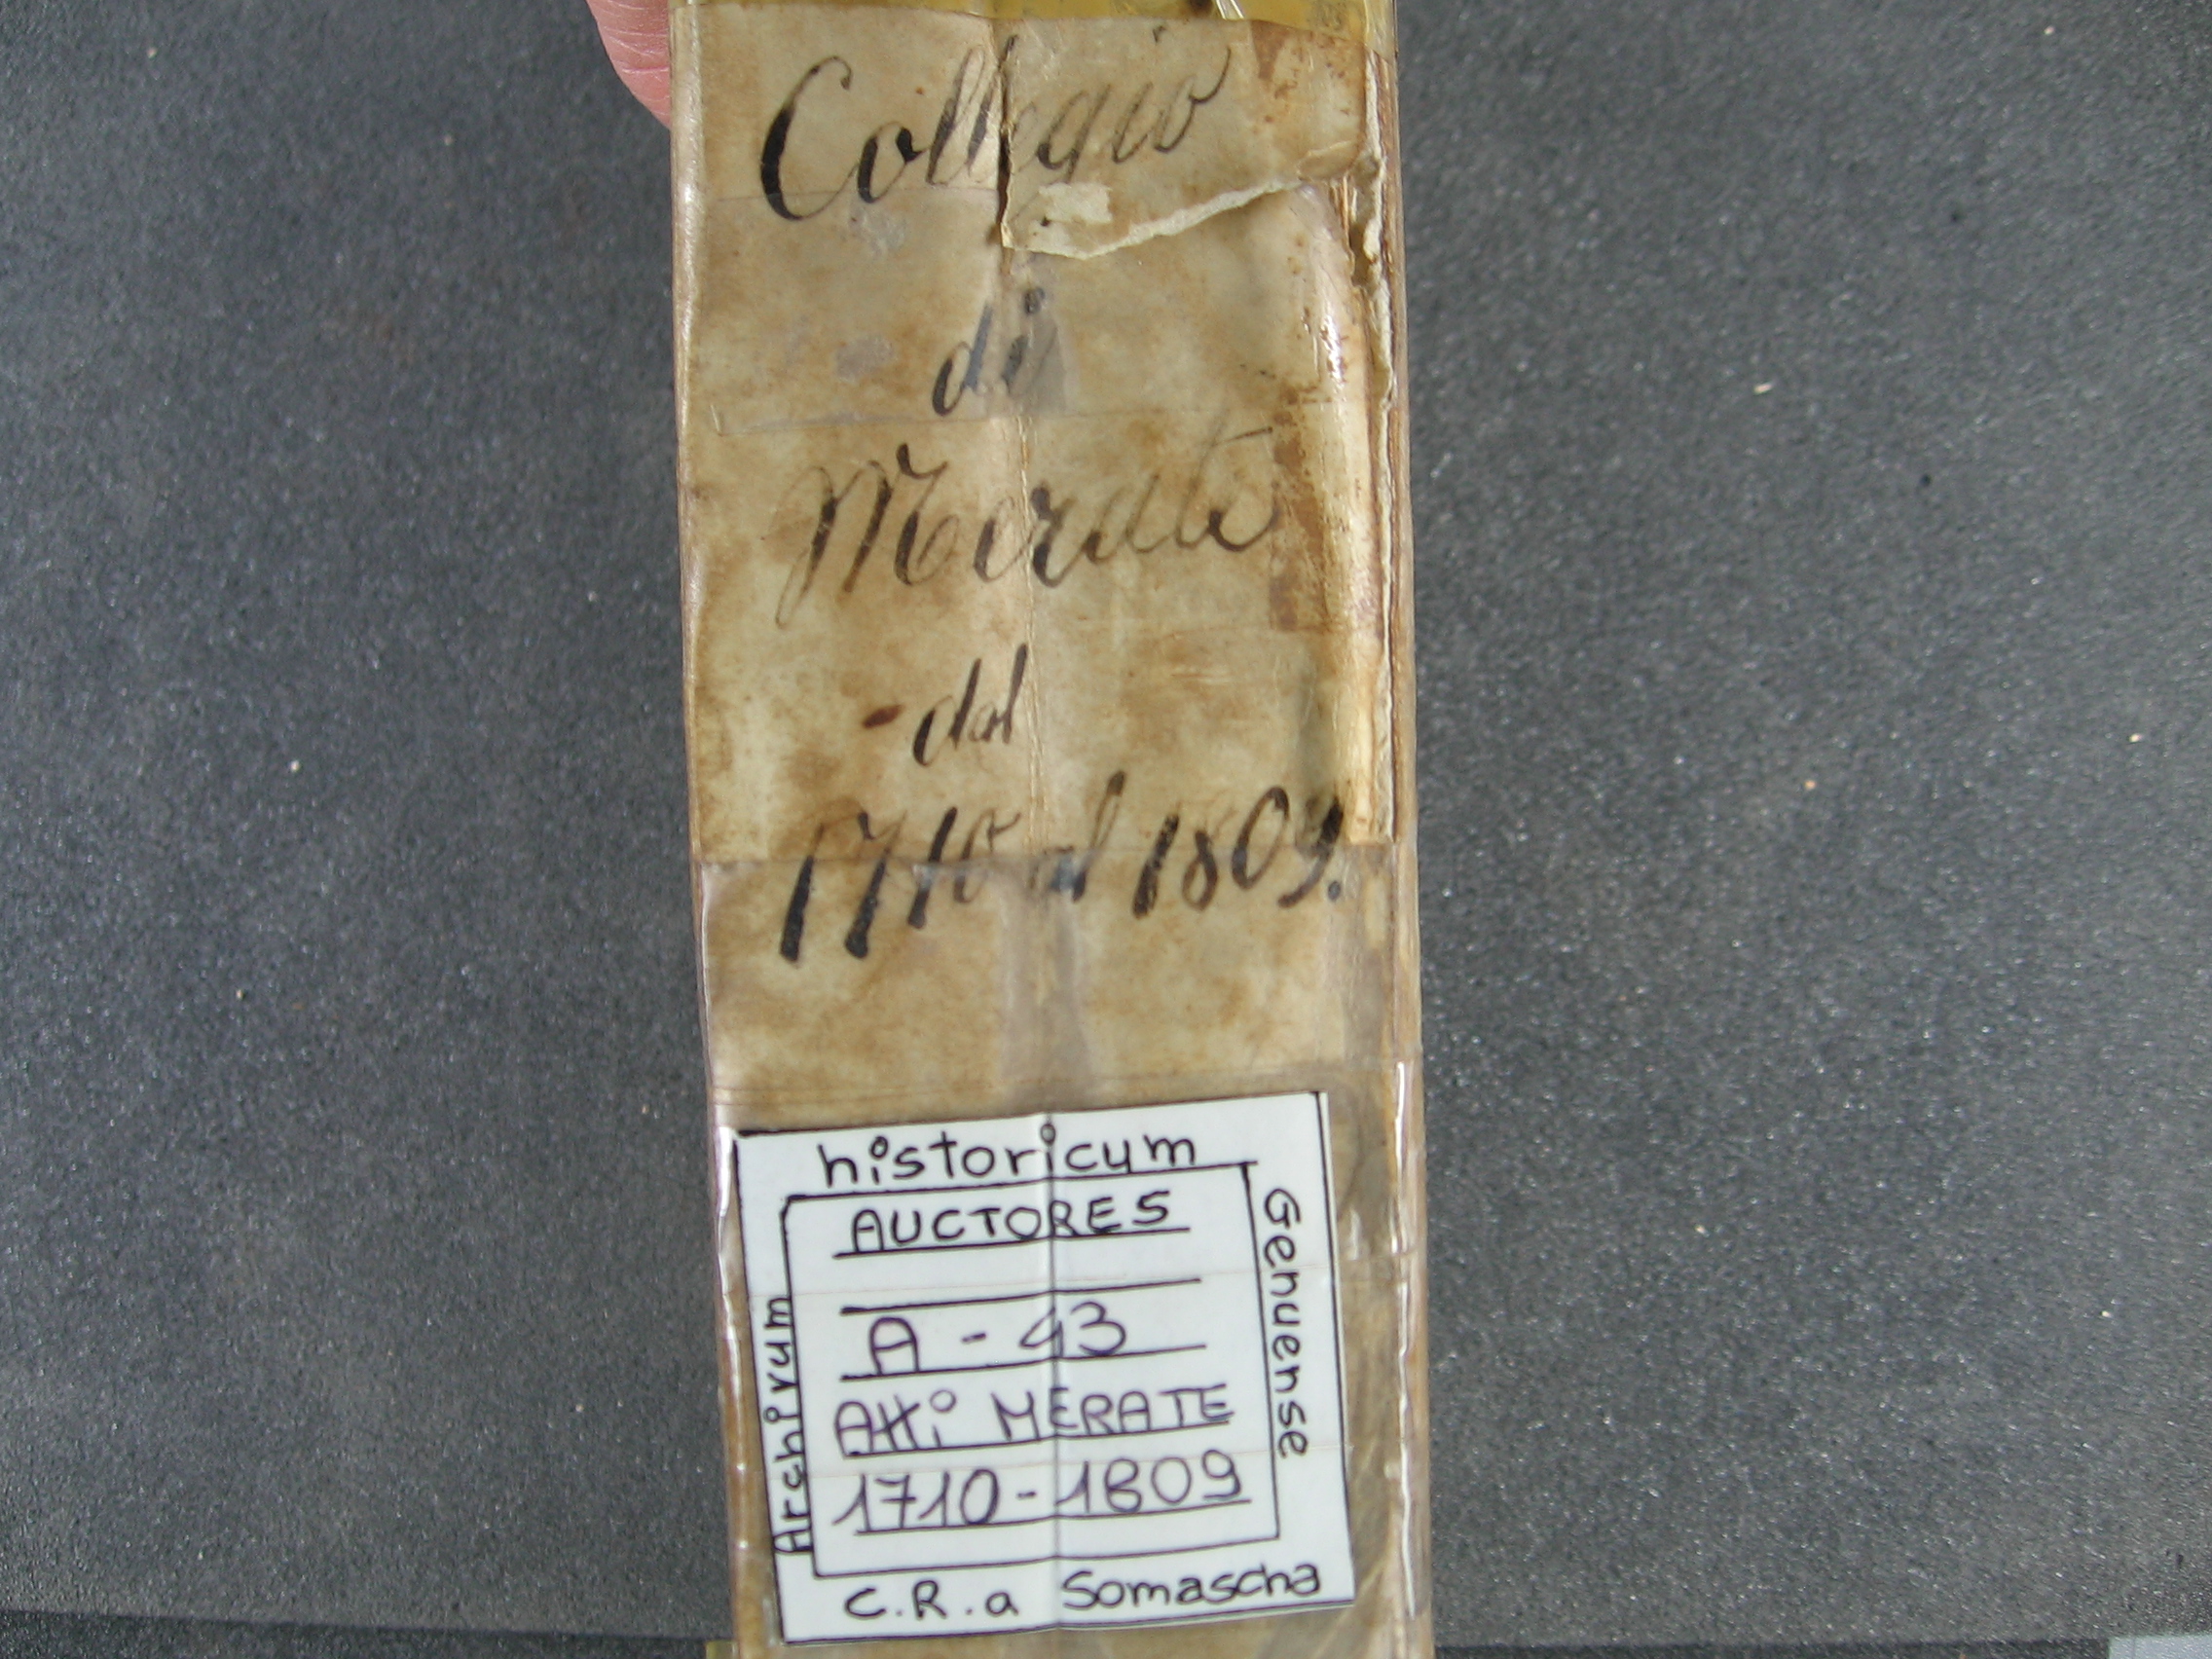 Collegio
di
Merate
dal
1710 al 1809.
historicum
AUCTORES
A - 43
Atti MERATE
1710-1809
Archivum
Genuense
C.R.a Somascha